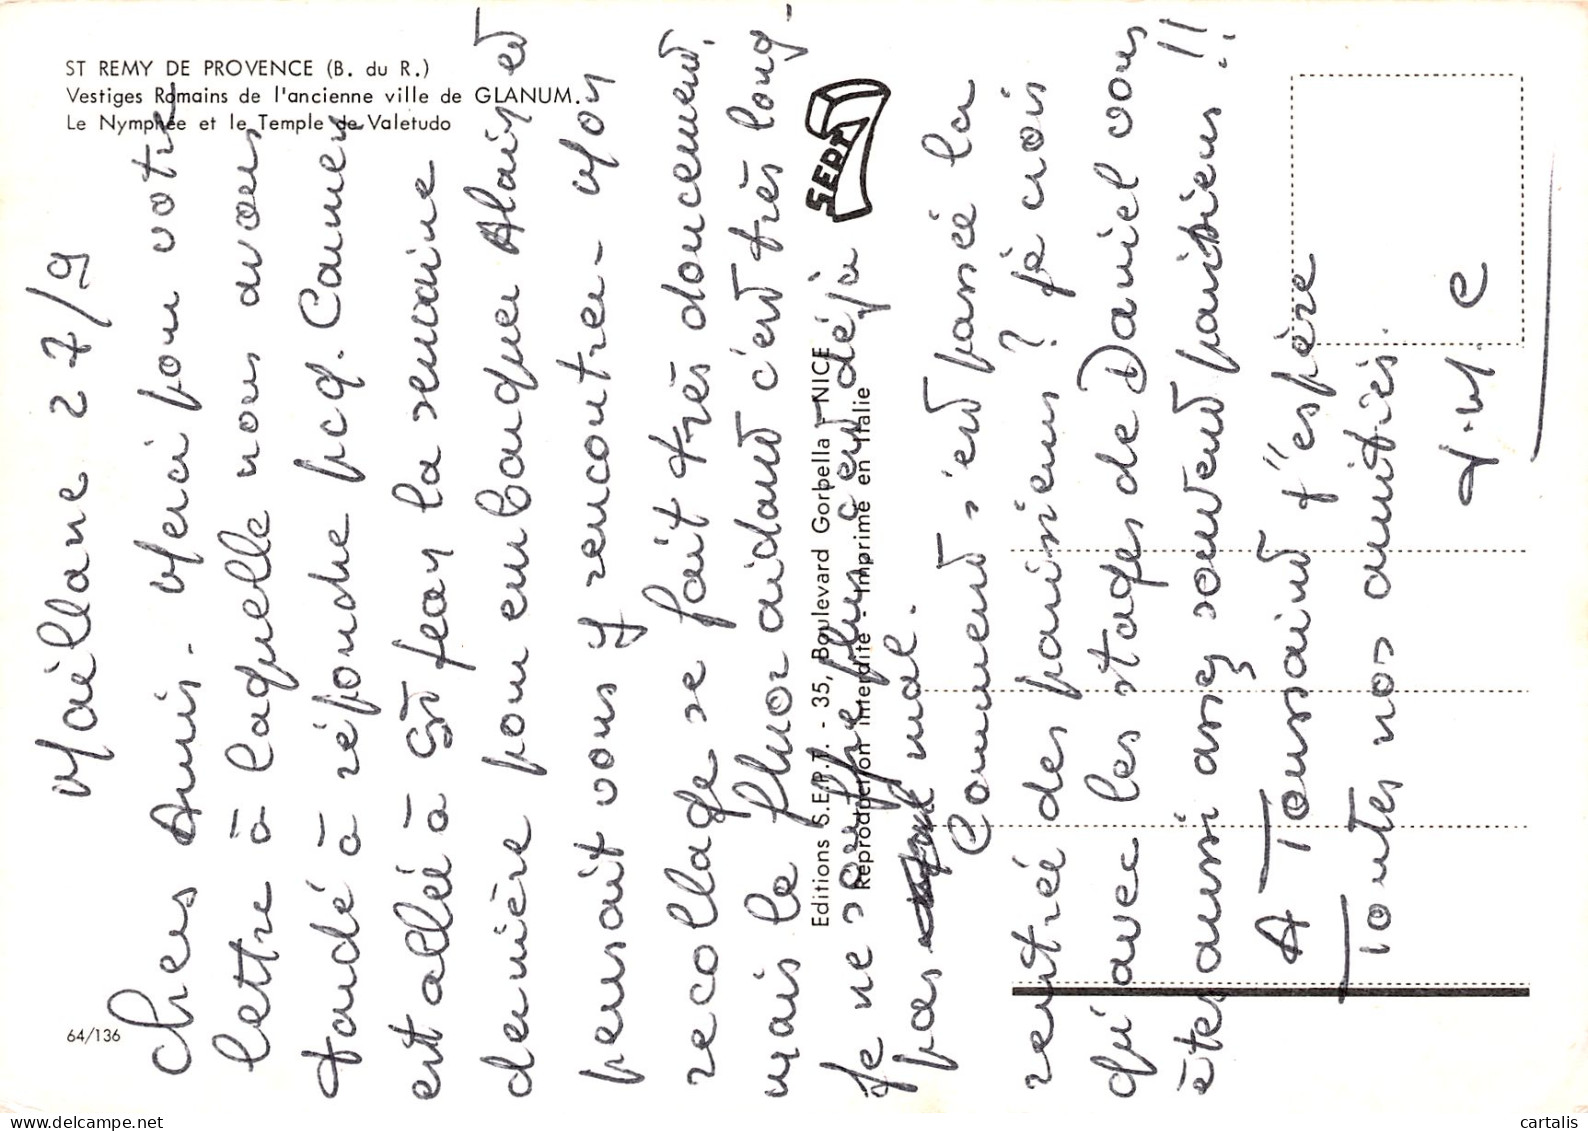 ST REMY DE PROVENCE (B. du R.)
Vestiges Romains de l'ancienne ville de GLANUM.
Le Nymphée et le Temple de Valetudo
Maillane 27/9
Chers Amis. Merci pour votre
lettre à laquelle nous avons
tardé à répondre pcq. Carmen
est allée à St Jean la semaine
dernière pour embarquer Alain et
pensait vous y rencontrer - Mon
recollage se fait très doucement.
mais le fluor aidant c'est très long -
Je ne souffre plus c'est déjà
pas mal.
Comment s'est passée la
rentrée des parisiens ? je crois
qu'avec les stages de Daniel vous
êtes aussi assez souvent parisiens !!
A Toussaint j'espère
Toutes nos amitiés.
SEPT
Editions S.E.P.T. - 35, Boulevard Gorbella - NICE
Reproduction interdite - Imprimé en Italie
64/136
cartalis